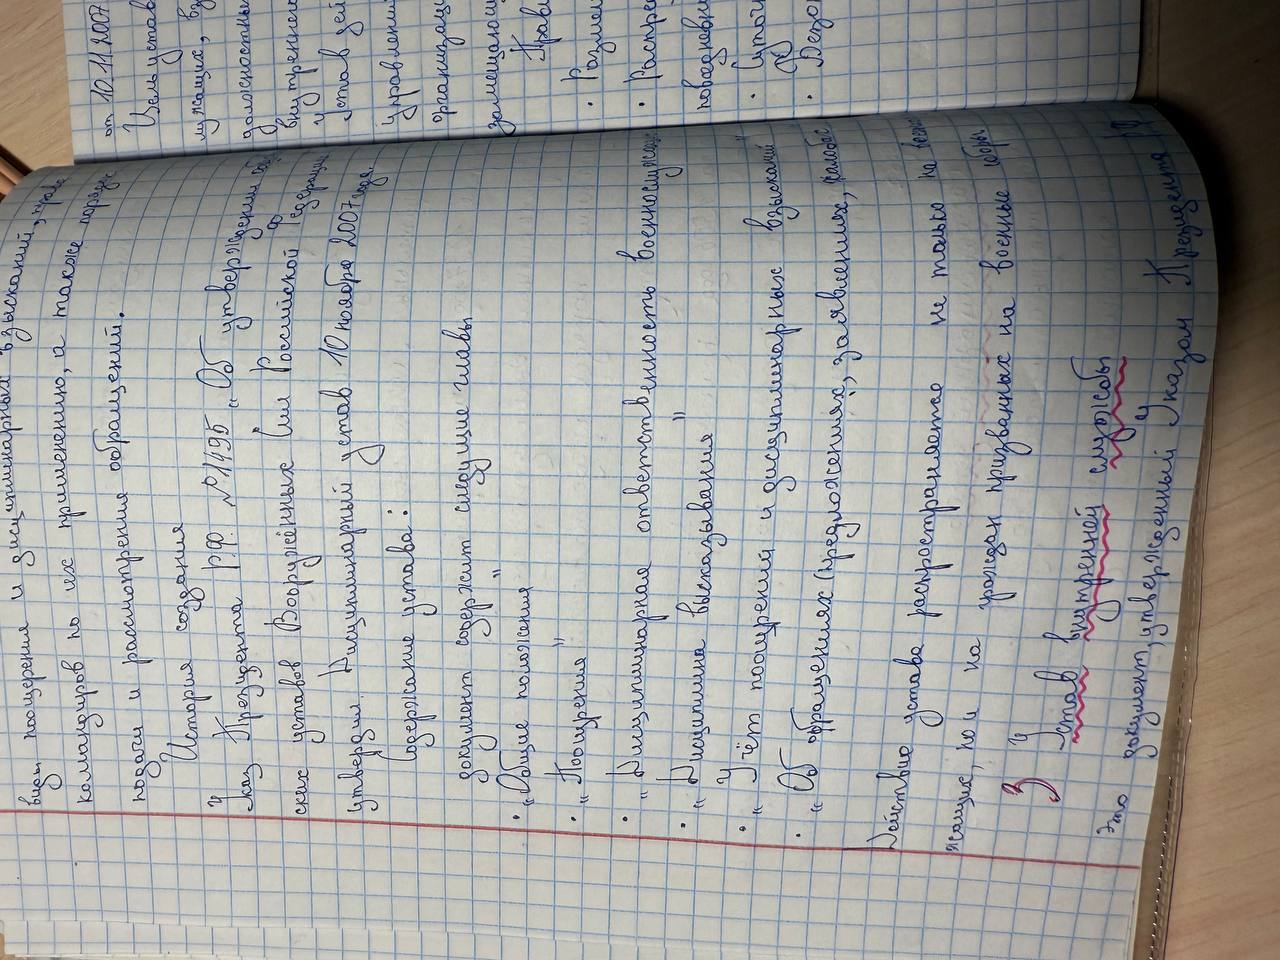 виды поощрения и дисциплинарных взысканий, права
командиров по их применению, а также порядок
подачи и рассмотрения обращений.
История создания
Указ Президента РФ №1495 „Об утверждении об
ских уставов Вооружённых Сил Российской Федерации
утвердил Дисциплинарный устав 10 ноября 2007 года.
Содержание устава:
документ содержит следущие главы
• „Общие положения"
• „Поощрения"
• „Дисциплинарная ответственность военнослужащ
• „Дисциплина высказывания"
• „Учёт поощрений и дисциплинарных взысканий"
• „Об обращениях (предложениях, заявлениях, жалобах
Действие устава распространяется не только на военно
жащих, но и на граждан призванных на военные сборы.
3 Устав внутренней службы
Это документ, утвержденный Указом Президента РФ
от 10.11.2007
Цель устав
лужащих, вз
должностны
внутреннего
Устав дей
управлени
организаци
замещающи
Прави
• Размещ
• Распре
повседневн
• Суточн
•